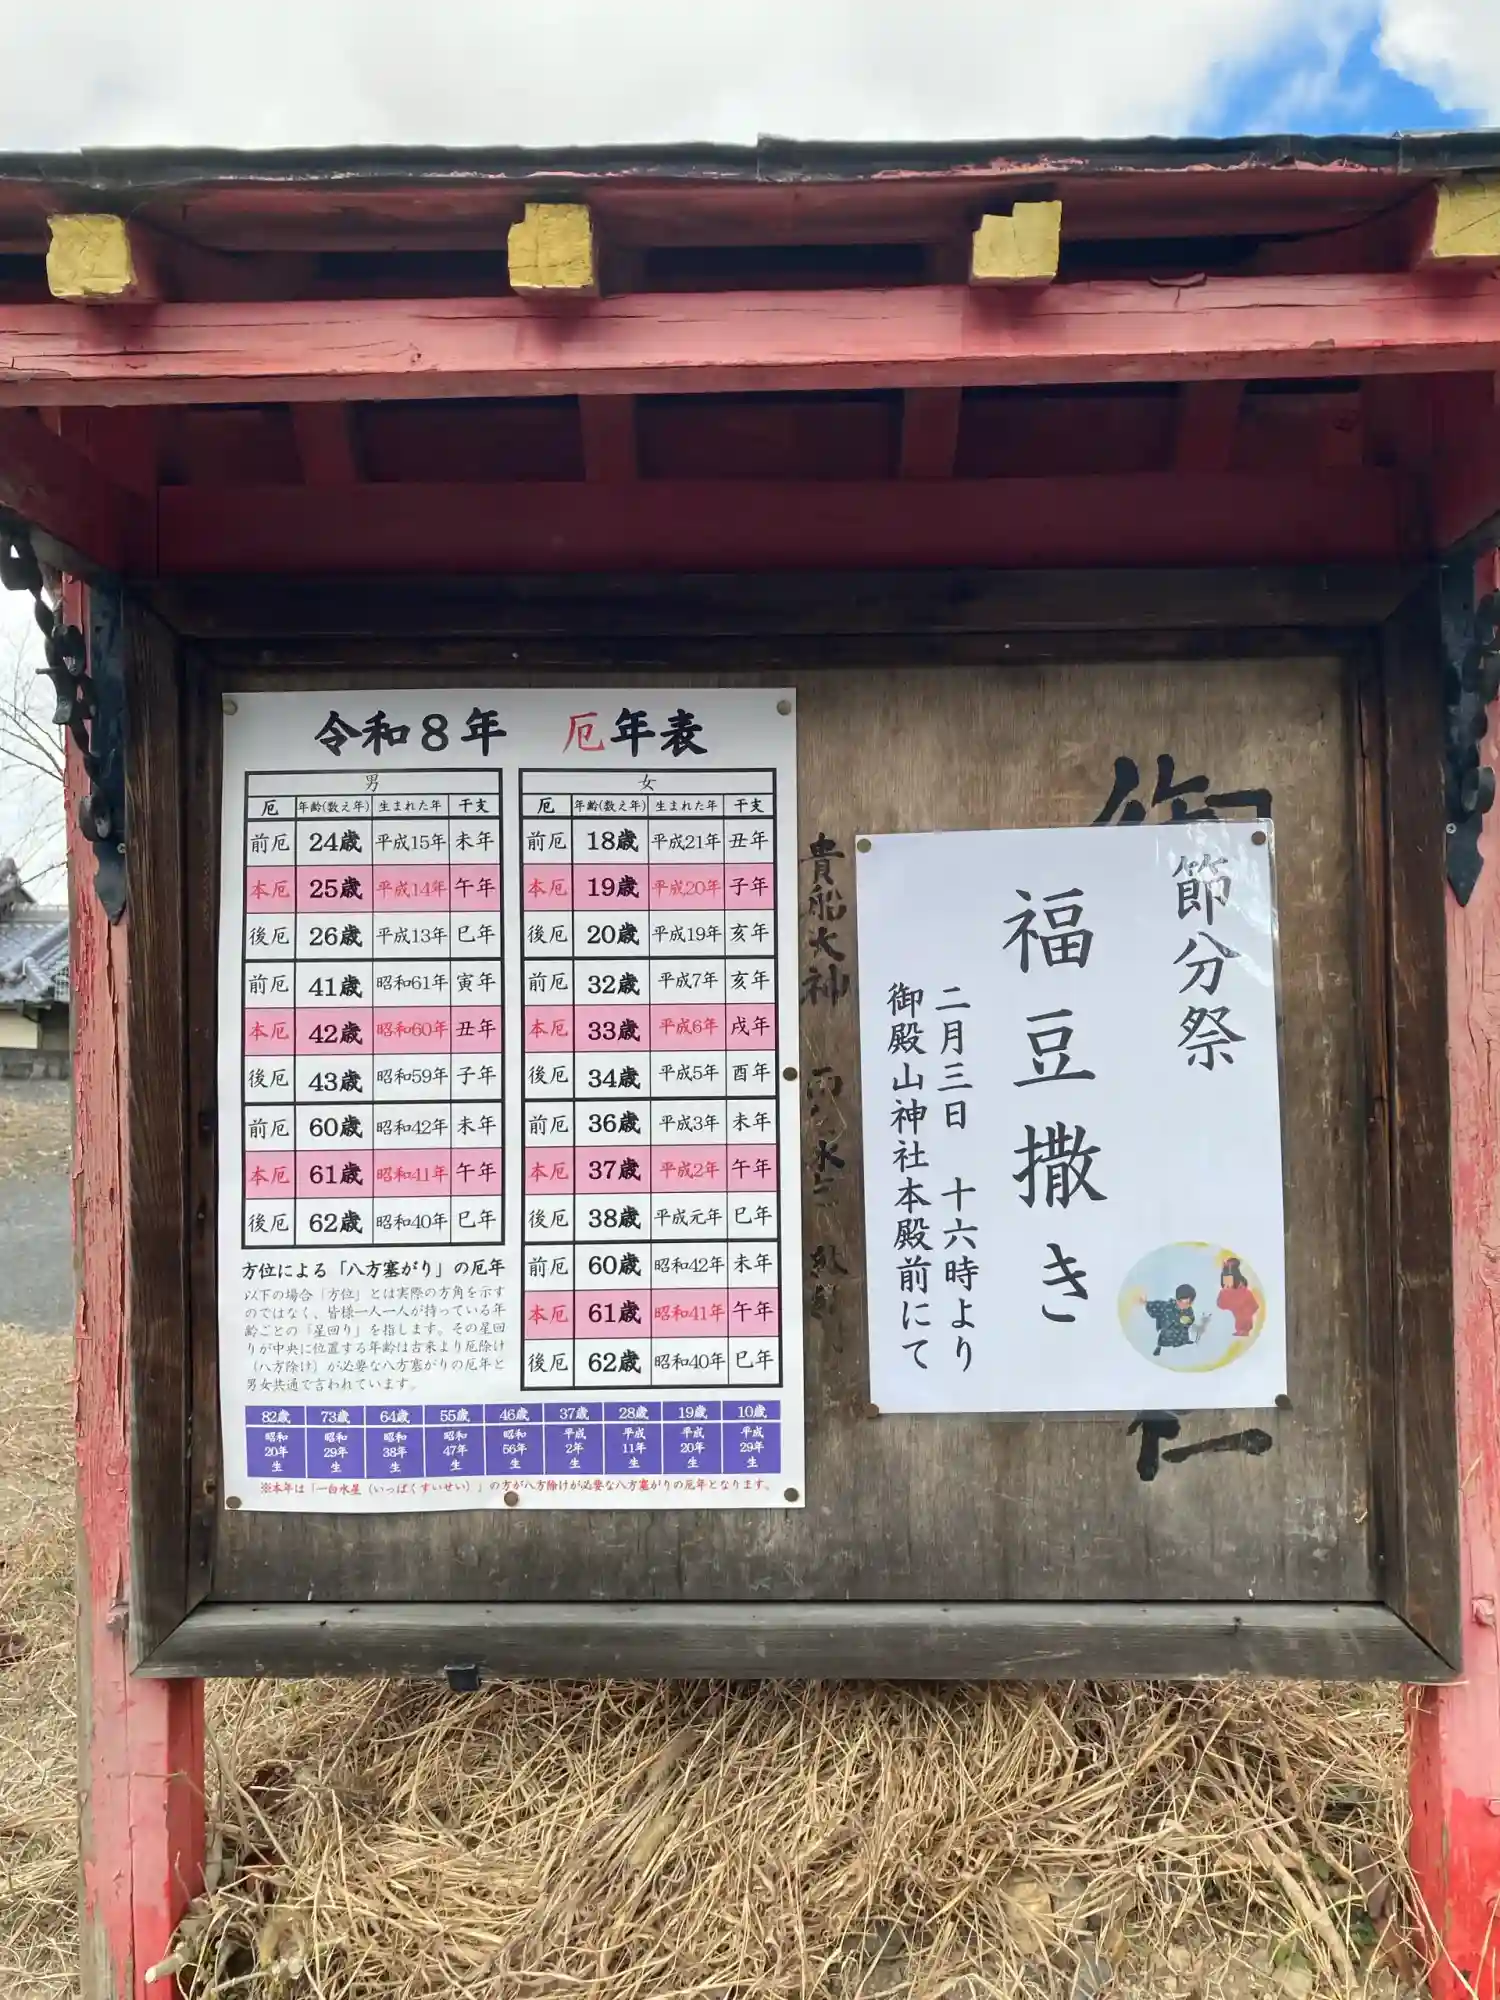 令和8年 厄年表
男
厄 年齢(数え年) 生まれた年 干支
前厄 24歳 平成15年 未年
本厄 25歳 平成14年 午年
後厄 26歳 平成13年 巳年
前厄 41歳 昭和61年 寅年
本厄 42歳 昭和60年 丑年
後厄 43歳 昭和59年 子年
前厄 60歳 昭和42年 未年
本厄 61歳 昭和41年 午年
後厄 62歳 昭和40年 巳年
女
厄 年齢(数え年) 生まれた年 干支
前厄 18歳 平成21年 丑年
本厄 19歳 平成20年 子年
後厄 20歳 平成19年 亥年
前厄 32歳 平成7年 亥年
本厄 33歳 平成6年 戌年
後厄 34歳 平成5年 酉年
前厄 36歳 平成3年 未年
本厄 37歳 平成2年 午年
後厄 38歳 平成元年 巳年
前厄 60歳 昭和42年 未年
本厄 61歳 昭和41年 午年
後厄 62歳 昭和40年 巳年
方位による「八方塞がり」の厄年
以下の場合「方位」とは実際の方角を示す
のではなく、皆様一人一人が持っている年
齢ごとの「星回り」を指します。その星回
りが中央に位置する年齢は古来より厄除け
（八方除け）が必要な八方塞がりの厄年と
男女共通で言われています。
82歳 73歳 64歳 55歳 46歳 37歳 28歳 19歳 10歳
昭和 昭和 昭和 昭和 昭和 平成 平成 平成 平成
20年 29年 38年 47年 56年 2年 11年 20年 29年
生 生 生 生 生 生 生 生 生
※本年は「一白水星（いっぱくすいせい）」の方が八方除けが必要な八方塞がりの厄年となります。
節分祭
福豆撒き
二月三日 十六時より
御殿山神社本殿前にて
貴船大神